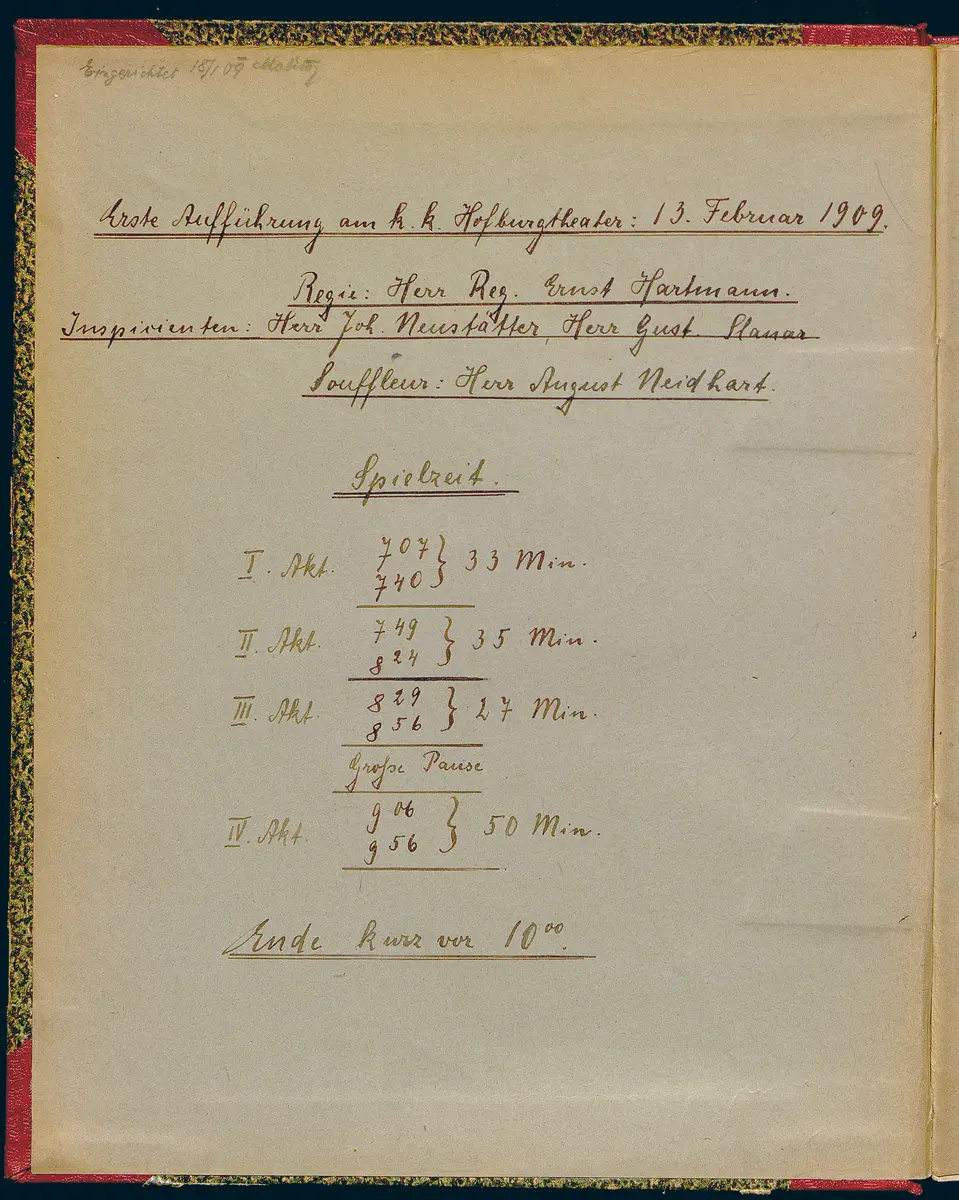 Eingerichtet 18/1 09
Erste Aufführung am k. k. Hofburgtheater: 13. Februar 1909.
Regie: Herr Reg. Ernst Hartmann.
Inspicienten: Herr Joh. Neustätter, Herr Gust. Slanar
Souffleur: Herr August Neidhart.
Spielzeit.
I. Akt. 7 07 } 33 Min.
7 40
II. Akt. 7 49 } 35 Min.
8 24
III. Akt. 8 29 } 27 Min.
8 56
Große Pause
IV. Akt. 9 06 } 50 Min.
9 56
Ende kurz vor 10 00.